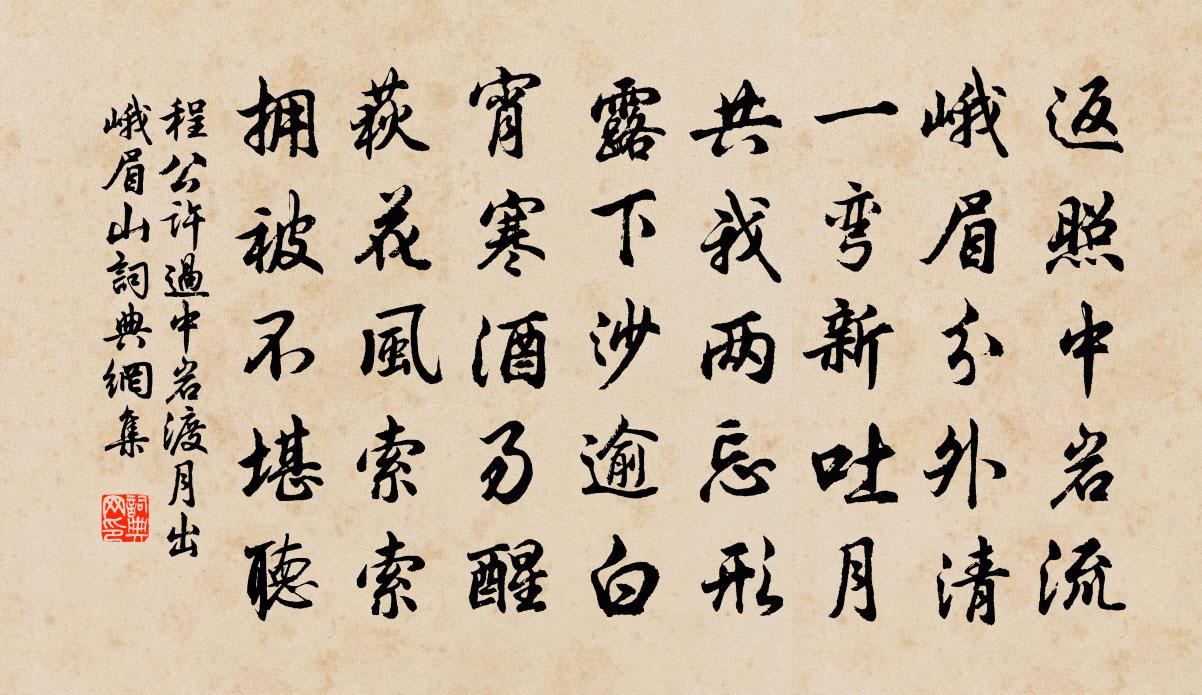 返照中岩流
峨眉分外清
一弯新吐月
共我两忘形
露下沙逾白
宵寒酒易醒
荻花風索索
拥被不堪聽
程公许過中岩渡月出
峨眉山詞典網集
詞典
网印